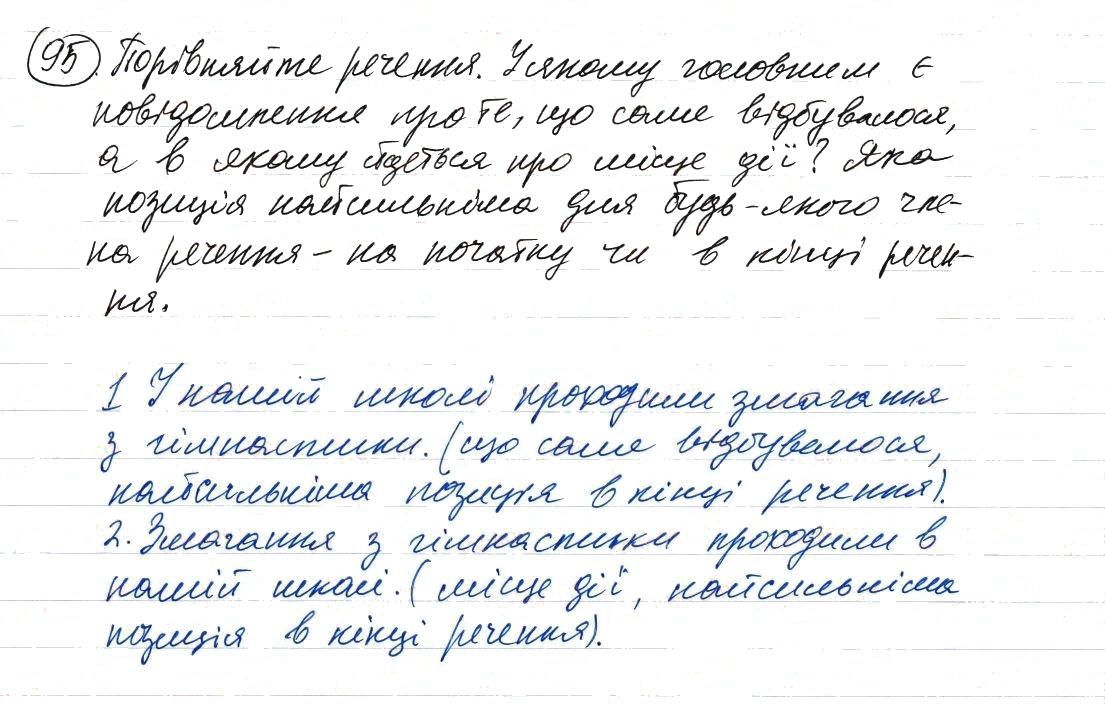 95. Порівняйте речення. У якому головним є
повідомлення про те, що саме відбувалося,
а в якому йдеться про місце дії? Яка
позиція найсильніша для будь-якого чле-
на речення – на початку чи в кінці речен-
ня.
1 У нашій школі проходили змагання
з гімнастики. (що саме відбувалося,
найсильніша позиція в кінці речення).
2. Змагання з гімнастики проходили в
нашій школі. (місце дії, найсильніша
позиція в кінці речення).